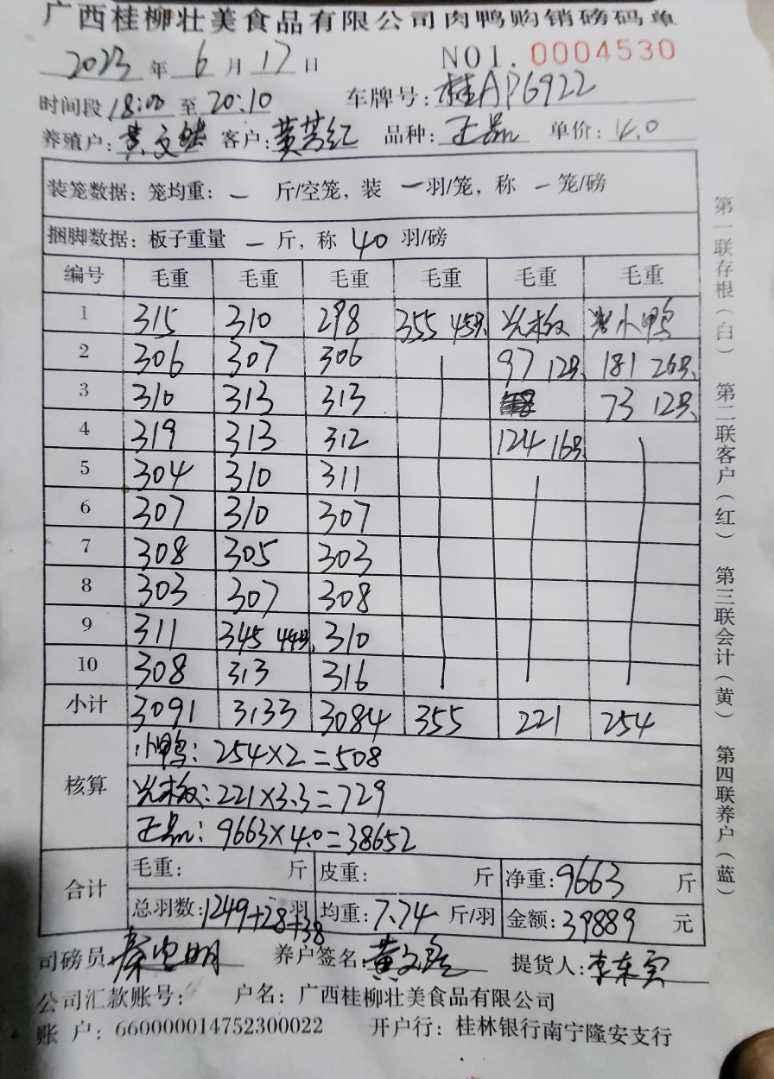 广西桂柳壮美食品有限公司肉鸭购销磅码单
2023 年 6 月 17 日 NO1. 0004530
时间段 18:00 至 20:10 车牌号: 桂AP6922
养殖户: 黄文 客户: 黄芳红 品种: 正品 单价: 4.0
装笼数据: 笼均重: — 斤/空笼, 装 一羽/笼, 称 一笼/磅
捆脚数据: 板子重量 — 斤, 称 40 羽/磅
编号 毛重 毛重 毛重 毛重 毛重 毛重
1 315 310 298 355 45只 光板 小鸭
2 306 307 306 97 12只 181 26只
3 310 313 313 73 12只
4 319 313 312 124 16只
5 304 310 311
6 307 310 307
7 308 305 303
8 303 307 308
9 311 345 44只 310
10 308 313 316
小计 3091 3133 3084 355 221 254
核算 小鸭: 254×2=508
光板: 221×3.3=729
正品: 9663×4.0=38652
合计 毛重: 斤 皮重: 斤 净重: 9663 斤
总羽数: 1249+28+38 羽 均重: 7.74 斤/羽 金额: 39889 元
司磅员 养户签名: 黄文 提货人:
公司汇款账号: 户名: 广西桂柳壮美食品有限公司
账 户: 660000014752300022 开户行: 桂林银行南宁隆安支行
第一联存根(白) 第二联客户(红) 第三联会计(黄) 第四联养户(蓝)